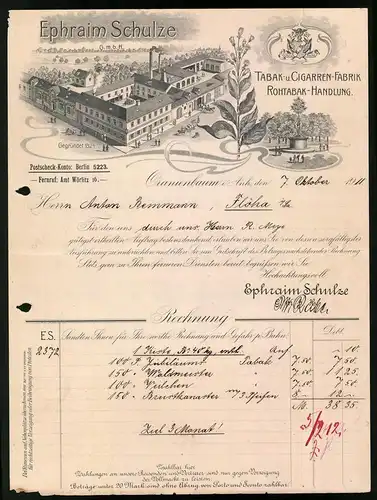 Ephraim Schulze
G.m.b.H.
TABAK- u. CIGARREN-FABRIK
ROHTABAK-HANDLUNG.
Gegründet
Postscheck-Konto: Berlin 5223.
Fernruf: Amt Wörlitz 16.
Oranienbaum i. Anh., den 7. Oktober 1911
Herrn Anton Remmann, Flöha i/Sa
Für den uns durch uns. Herrn R. Meye
gütigst erteilten Auftrag bestens dankend, erlauben wir uns Sie von dessen sorgfältigster
Ausführung zu unterrichten und bitten Sie um Gutschrift des Betrages nachstehender Rechnung.
Stets gern zu Ihren ferneren Diensten bereit, begrüßen wir Sie
Hochachtungsvoll
Ephraim Schulze
Rechnung
E.S.
Sandten Ihnen für Ihre werte Rechnung und Gefahr p. Bahn:
2372
1 Kiste Bto 40 kg, enth.
100 P. Jubiläums Tabak 7,50 7 50
150 " Waldmeister 7,50 11 25
100 " Veilchen 7,50 7 50
150 " Brustkanaster m/3 Pfeifen 8 " 12
M. 38 35
Ziel 3 Monat!
Zahlbar hier
Zahlungen an unsere Reisenden und Vertreter sind nur gegen Vorzeigung
der Vollmacht zu leisten.
Beträge unter 20 Mark sind ohne Abzug von Porto und Konto zahlbar.